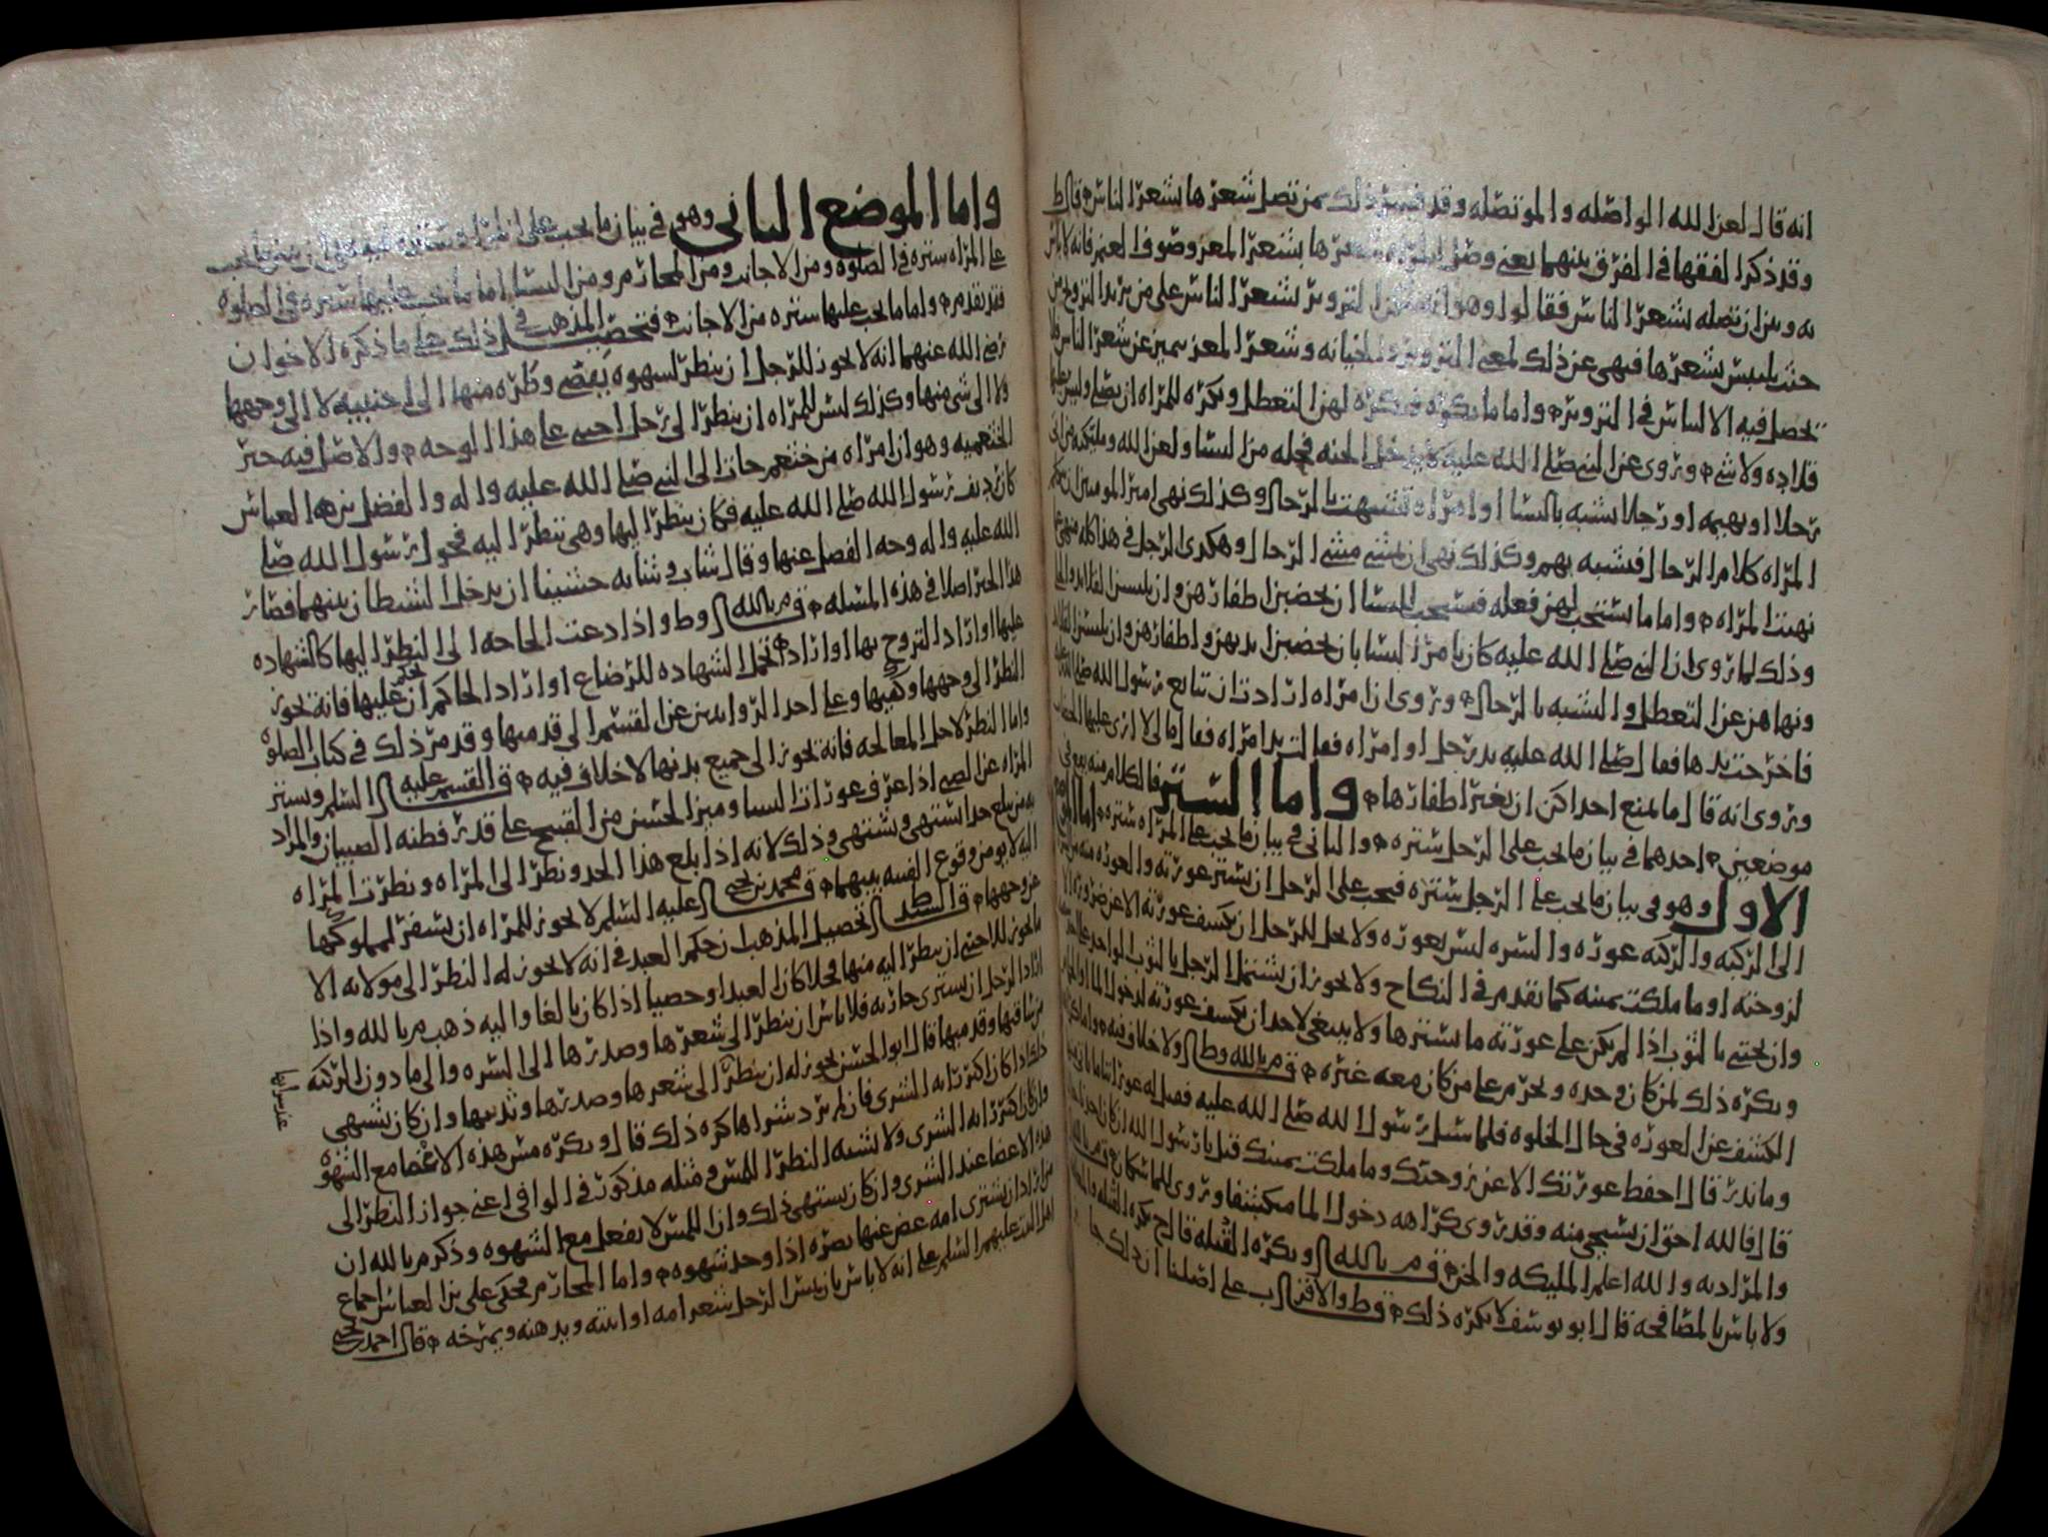 انه قال لعن الله الواصله والموتصله وقد فسر ذلك بمن تصل شعرها بشعر الناس قال ط
وقد ذكر الفقها في الفرق بينهما يعني وصل المراه شعرها بشعر المعز وصوف الغنم فانه لا باس
به وبين ان تصله بشعر الناس فقالوا وهو انه بشعر الناس على من يريد التزوج من
حيث يلبس بشعرها فنهى عن ذلك لمعنى التزوير والخيانه وشعر المعز يتميز عن شعر الناس فلا
يحصل فيه الالباس في التزوير واما ما يكره فيكره لهن التعطل ويكره للمراه ان تصلي وليس عليها
قلاده ولا شي وروي عن النبي صلى الله عليه لا يدخل الجنه فحله من النسا ولعن الله ومليكته من اتى
رجلا او بهيمه او رجلا تشبه بالنسا او امراه تشبهت بالرجال وكذلك نهى امير المومنين ان تكلم
المراه كلام الرجال فتشبه بهم وكذلك نهى ان تمشي مشي الرجال وهكذى الرجل في هذا كله منهي عما
نهيت المراه واما ما يستحب لهن فعله فيستحب للنسا ان يخضبن اظفارهن وان يلبسن القلايد والحلي
وذلك لما روي ان النبي صلى الله عليه كان يامر النسا بان يخضبن ايديهن واظفارهن وان يلبسن القلايد
ونهاهن عن التعطل والتشبه بالرجال وروي ان امراه ارادت ان تبايع رسول الله صلى الله عليه
فاخرجت يدها فقال صلى الله عليه يد رجل او امراه فقالت يد امراه فقال ما لي لا ارى عليها الخضاب
وروي انه قال ما يمنع احداكن ان تغير اظفارها واما الستر فالكلام منه يقع في
موضعين احدهما في بيان ما يجب على الرجل ستره والثاني في بيان ما يجب على المراه ستره اما الموضع
الاول وهو في بيان ما يجب على الرجل ستره فيجب على الرجل ان يستر عورته والعوره منه من
الى الركبه والركبه عوره والسره ليس بعوره ولا يحل للرجل ان يكشف عورته الا عن ضروره الا
لزوجته او ما ملكت يمينه كما تقدم في النكاح ولا يجوز ان يشتمل الرجل بالثوب الواحد
وان يحتبي بالثوب اذا لم يكن على عورته ما يسترها ولا ينبغي لاحد ان يكشف عورته لدخول الما
ويكره ذلك لمن كان وحده ويحرم على من كان معه غيره ق م بالله وط ولا خلاف فيه واما
الكشف عن العوره في حال الخلوه فلما سيل رسول الله صلى الله عليه فقيل له عوراتنا ما ناتي منها
وما نذر قال احفظ عورتك الا عن زوجتك وما ملكت يمينك قيل يا رسول الله ان كان احدنا
قال فالله احق ان يستحيى منه وقد روي كراهه دخول الما منكشفا وروي للما سكان
والمراد به والله اعلم المليكه والجن ق م بالله ويكره القبله قال ح يكره القبله
ولا باس بالمصافحه قال ابو يوسف لا يكره ذلك ق ط والاقرب على اصلنا ان ذلك جا
واما الموضع الثاني وهو في بيان ما يجب على المراه
على المراه ستره في الصلوه ومن الاجانب ومن المحارم ومن النسا اما ما يجب عليها ستره في الصلوه
فقد تقدم واما ما يجب عليها ستره من الاجانب فتحصيل المذهب في ذلك على ما ذكره الاخوان
رضي الله عنهما انه لا يجوز للرجل ان ينظر لشهوه يقضي وطره منها الى اجنبيه لا الى وجهها
ولا الى شي منها وكذلك ليس للمراه ان تنظر الى رجل اجنبي على هذا الوجه والاصل فيه خبر
الخثعميه وهو ان امراه من خثعم جات الى النبي صلى الله عليه واله والفضل بن العباس
كان رديف رسول الله صلى الله عليه فكان ينظر اليها وهي تنظر اليه فحول رسول الله صلى
الله عليه واله وجه الفضل عنها وقال شاب وشابه خشيت ان يدخل الشيطان بينهما فصار
هذا الخبر اصلا في هذه المسله ق م بالله وط واذا دعت الحاجه الى النظر اليها كالشهاده
عليها او اراد التزوج بها او اراد تحمل الشهاده للرضاع او اراد الحاكم ان يحكم عليها فانه يجوز
النظر الى وجهها وكفيها وعلى احد الروايتين عن القسم الى قدميها وقد مر ذلك في كتاب الصلوه
واما النظر لاجل المعالجه فانه يجوز الى جميع بدنها لا خلاف فيه ق القسم عليه السلم وتستر
المراه عن الصبي اذا عرف عورات النسا وميز الحسن من القبيح على قدر فطنه الصبيان والمراد
به من بلغ حدا يشتهي ويشتهى وذلك لانه اذا بلغ هذا الحد ونظر الى المراه ونظرت المراه
اليه لا يومن وقوع الفتنه بينهما ق محمد بن يحيى عليه السلم لا يجوز للمراه ان تسفر لمملوكها
عن وجهها ق السيد ط تحصيل المذهب ان حكم العبد في انه لا يجوز له النظر الى مولاته الا
ما يجوز للاجنبي ان ينظر اليه منها فحلا كان العبد او خصيا اذا كان بالغا واليه ذهب م بالله واذا
اراد الرجل ان يشتري جاريه فلا باس ان ينظر الى شعرها وصدرها الى السره والى ما دون الركبه
من ساقيها وقدميها قال ابو الحسن يجوز له ان ينظر الى شعرها وصدرها وثدييها وان كان يشتهي
ذلك اذا كان اكثر رايه الشرى فان لم يرد شراها كره ذلك قال ويكره مس هذه الاعضا مع الشهوه
وان كان اكثر رايه الشرى ولا يشبه النظر المس ومثله مذكور في الوافي اعني جواز النظر الى
هذه الاعضا عند الشرى وان كان يشتهي ذلك وان المس لا يفعل مع الشهوه وذكر م بالله ان
من اراد ان يشتري امه غض عنها بصره اذا وجد شهوه واما المحارم فحكى علي بن العباس اجماع
اهل البيت عليهم السلم على انه لا باس بان يمس الرجل شعر امه او ابنته ويدهنه ويمرخه قال احمد بن يحيى